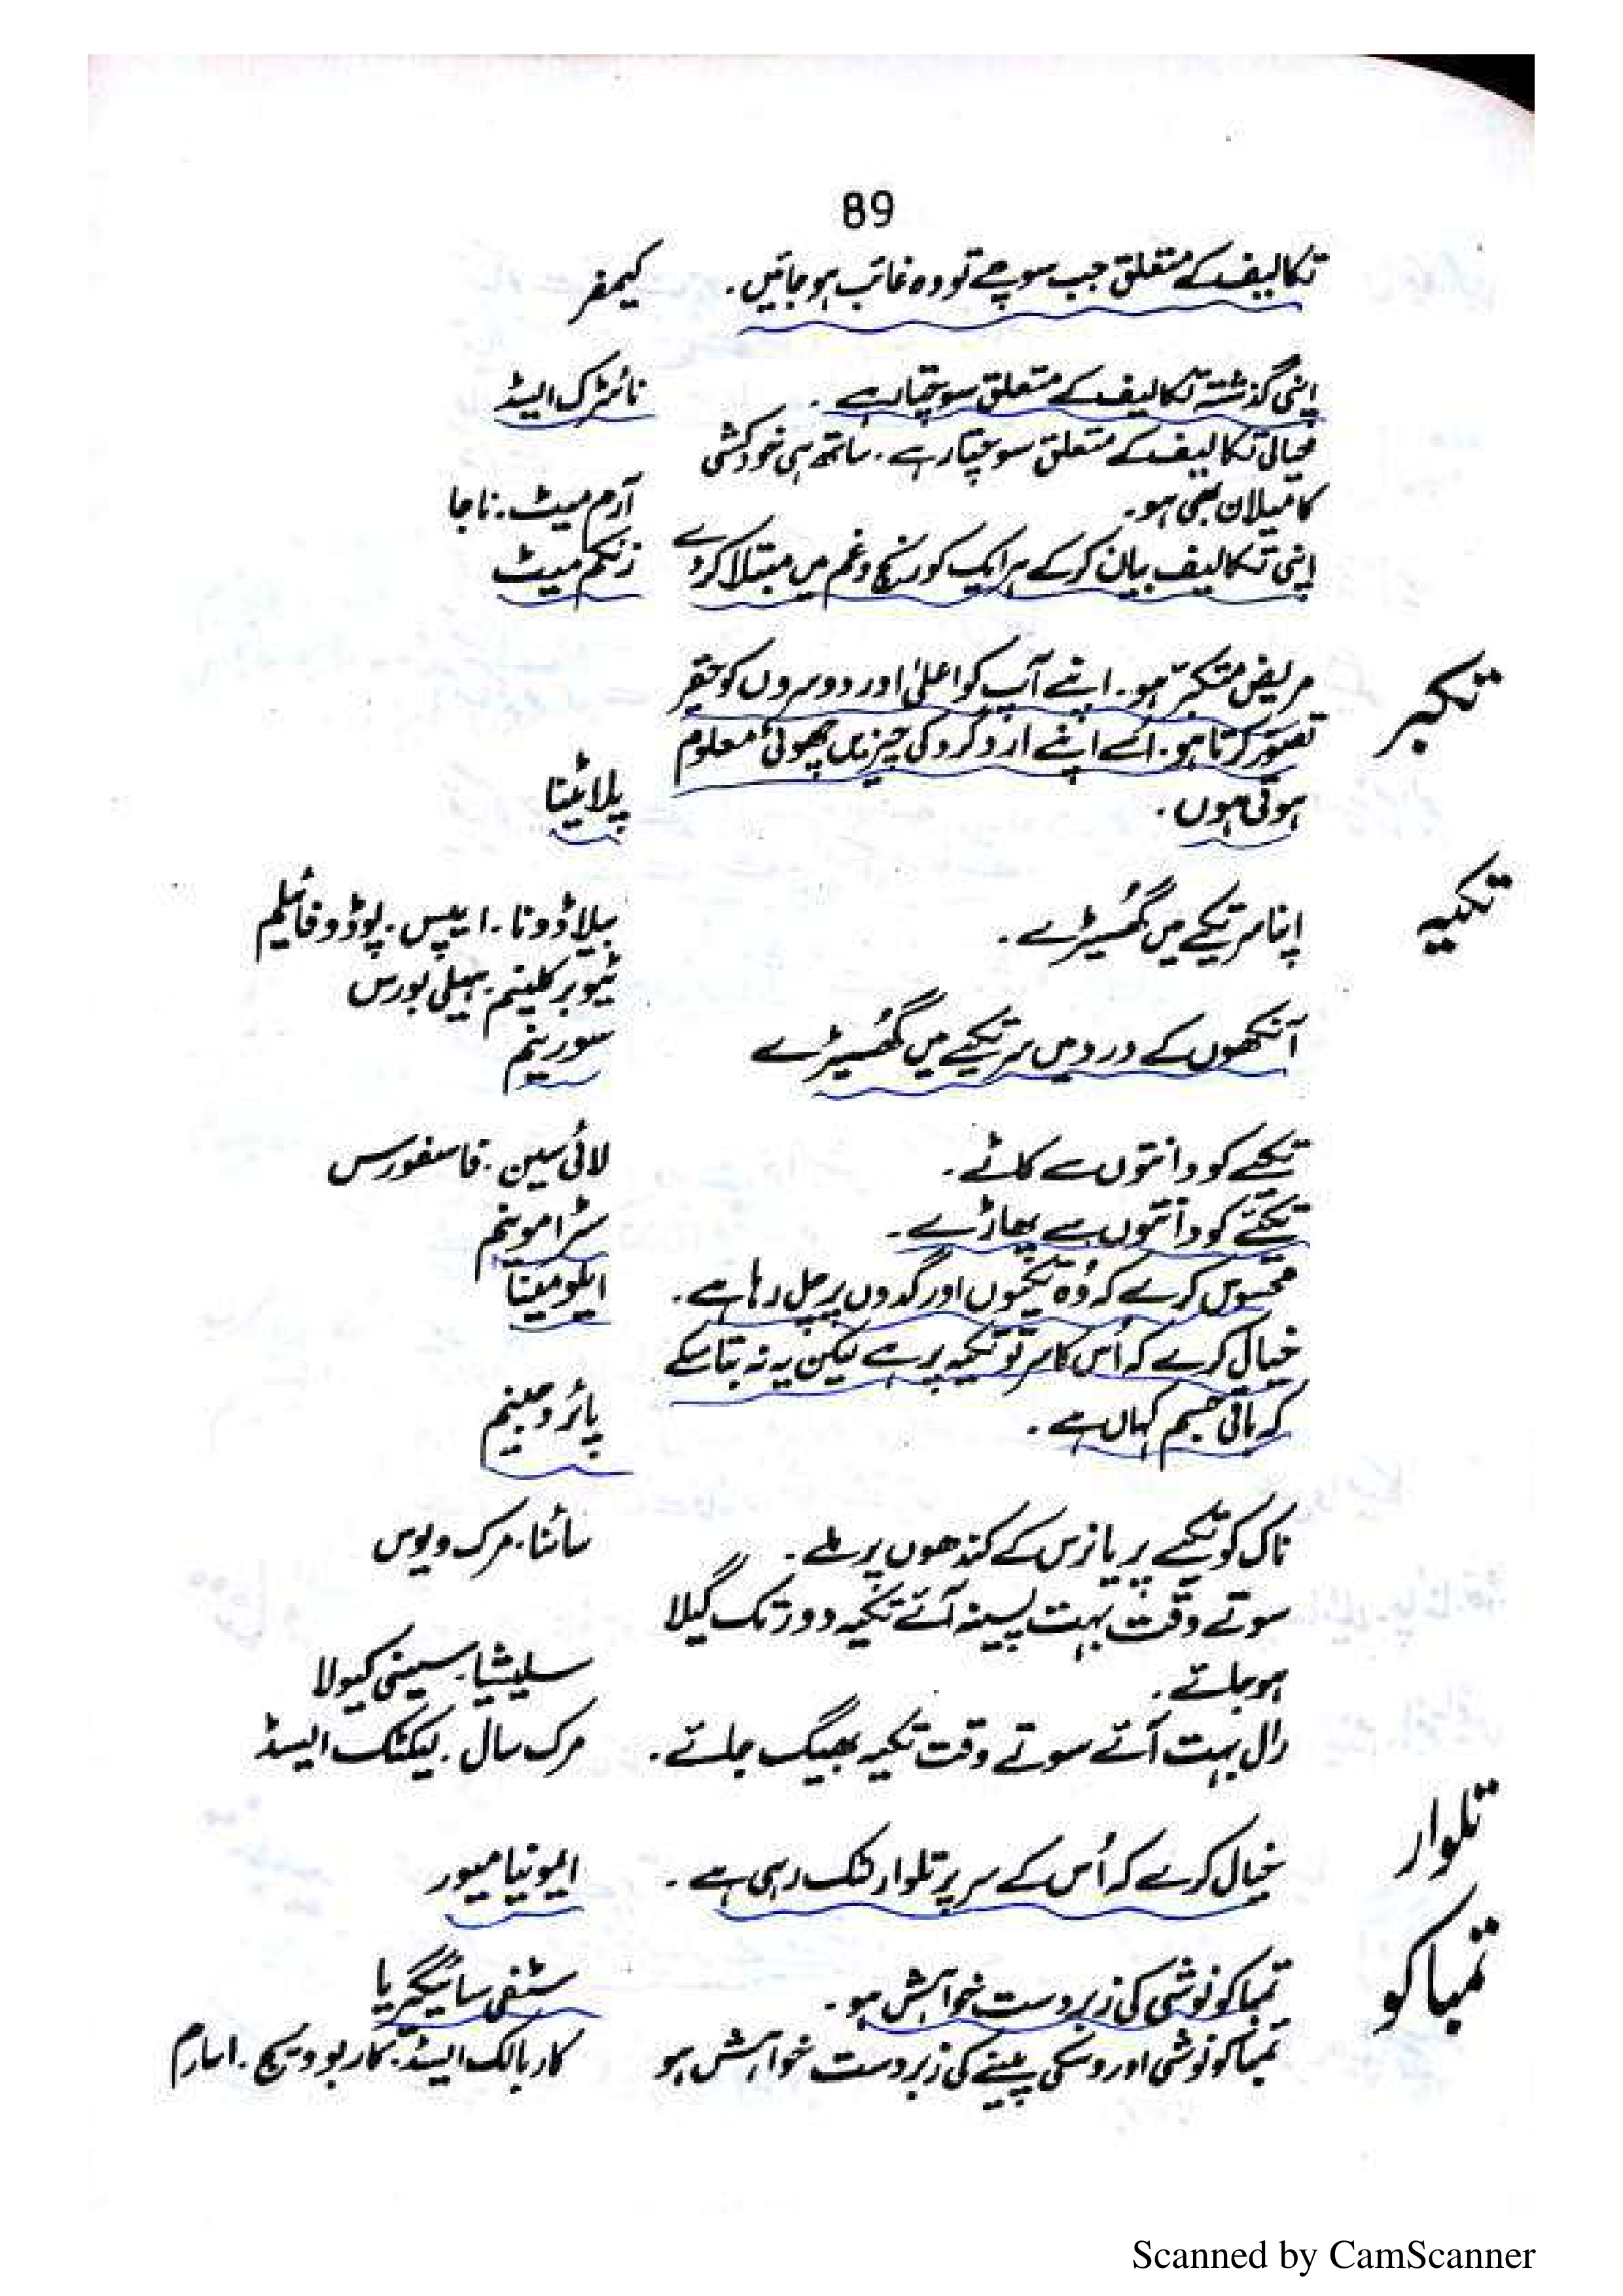 89
تکالیف کے متعلق جب سوچے تو وہ غائب ہو جائیں۔ کیمفر
اپنی گذشتہ تکالیف کے متعلق سوچتا رہے۔ نائٹرک ایسڈ
خیالی تکالیف کے متعلق سوچتا رہے۔ ساتھ ہی خودکشی
کا میلان بھی ہو۔ آرم میٹ۔ ناجا
اپنی تکالیف بیان کر کے ہر ایک کو رنج و غم میں مبتلا کر دے زنکم میٹ
تکبر مریض متکبر ہو۔ اپنے آپ کو اعلیٰ اور دوسروں کو حقیر
تصور کرتا ہو۔ اسے اپنے ارد گرد کی چیزیں چھوٹی معلوم
ہوتی ہوں۔ پلاٹینا
تکیہ اپنا سر تکیے میں گھسیڑے۔ بیلاڈونا۔ ایپس۔ پوڈوفائیلم
ٹیوبرکلینم۔ ہیلی بورس
آنکھوں کے درد میں سر تکیے میں گھسیڑے سورینم
تکیے کو دانتوں سے کاٹے۔ لائی سین۔ فاسفورس
تکیے کو دانتوں سے پھاڑے۔ سٹرامونیم
محسوس کرے کہ وہ تکیوں اور گدوں پر چل رہا ہے۔ ایلومینا
خیال کرے کہ اُس کا سر تو تکیہ پر ہے لیکن یہ نہ بتا سکے
کہ باقی جسم کہاں ہے۔ پائروجینم
ناک کو تکیے پر یا نرس کے کندھوں پر ملے۔ سائنا۔ مرک ویوس
سوتے وقت بہت پسینہ آئے تکیہ دور تک گیلا
ہو جائے۔ سلیشیا۔ سینی کیولا
رال بہت آئے سوتے وقت تکیہ بھیگ جائے۔ مرک سال۔ لیکٹک ایسڈ
تلوار خیال کرے کہ اُس کے سر پر تلوار لٹک رہی ہے۔ ایمونیا میور
تمباکو تمباکو نوشی کی زبردست خواہش ہو۔ سٹفی سائیگریا
تمباکو نوشی اور وسکی پینے کی زبردست خواہش ہو کاربالک ایسڈ۔ کاربوویج۔ اسارم
Scanned by CamScanner